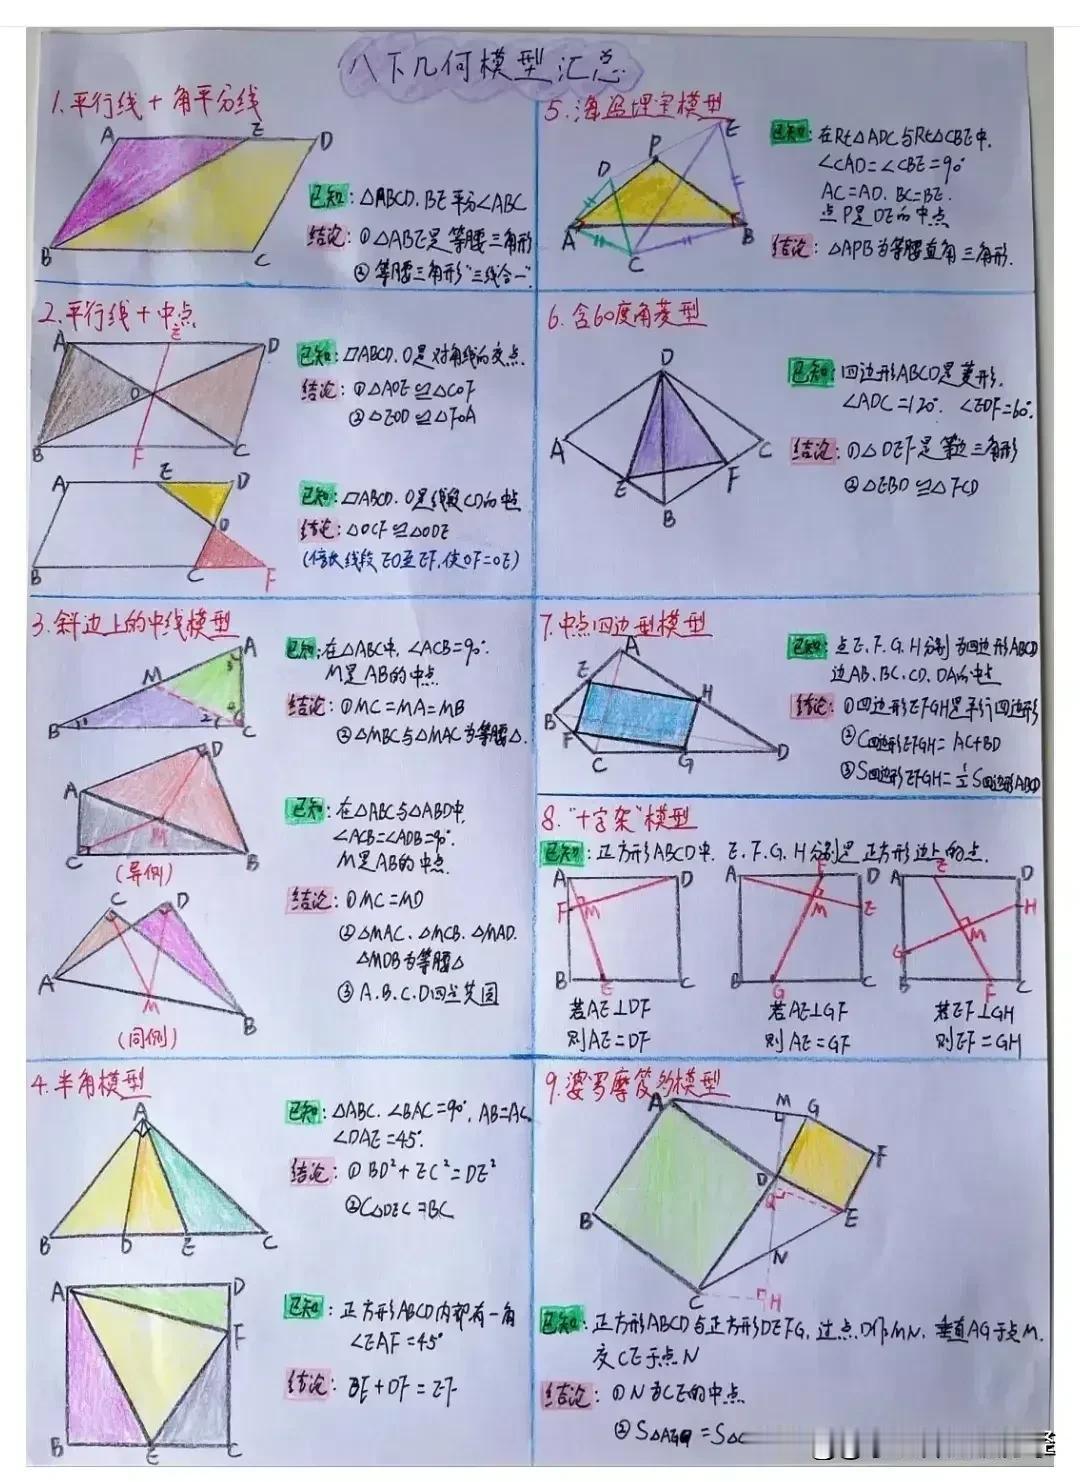 八下几何模型汇总
1.平行线+角平分线
A
E
D
B
C
已知:△ABCD.BE平分∠ABC
结论:①△ABE是等腰三角形
②等腰三角形"三线合一".
2.平行线+中点
A
E
D
O
B
F
C
已知:▱ABCD.O是对角线的交点.
结论:①△AOE≌△COF
②△EOD≌△FOA
A
E
D
O
B
C
F
已知:▱ABCD.O是线段CD的中点
结论:△OCF≌△ODE
(倍长线段EO至EF,使OF=OE)
3.斜边上的中线模型
A
M
B
C
1
2
3
4
已知:在△ABC中,∠ACB=90°.
M是AB的中点.
结论:①MC=MA=MB
②△MBC与△MAC为等腰△.
D
A
M
C
B
(异侧)
C
D
A
M
B
(同侧)
已知:在△ABC与△ABD中,
∠ACB=∠ADB=90°.
M是AB的中点.
结论:①MC=MD
②△MAC、△MCB、△MAD.
△MDB为等腰△
③A.B.C.D四点共圆
4.半角模型
A
B
D
E
C
已知:△ABC.∠BAC=90°,AB=AC
∠DAE=45°.
结论:①BD²+EC²=DE²
A
D
F
B
E
C
已知:正方形ABCD内部有一角
∠EAF=45°
结论:BE+DF=EF
5.海盗埋宝模型
E
P
D
A
B
C
已知:在Rt△ADC与Rt△CBE中.
∠CAD=∠CBE=90°
AC=AD.BC=BE.
点P是DE的中点
结论:△APB为等腰直角三角形.
6.含60度角菱型
D
A
C
E
F
B
已知:四边形ABCD是菱形.
∠ADC=120°.∠EDF=60°.
结论:①△DEF是等边三角形
②△EBD≌△FCD
7.中点四边型模型
A
E
H
B
F
C
G
D
已知:点E.F.G.H分别为四边形ABCD
边AB.BC.CD.DA的中点
结论:①四边形EFGH是平行四边形
②C四边形EFGH=AC+BD
③S四边形EFGH=½S四边形ABCD
8."十字架"模型
已知:正方形ABCD中.E.F.G.H分别是正方形边上的点.
A
D
F
M
B
E
C
若AE⊥DF
则AE=DF
A
F
D
M
E
B
G
C
若AE⊥GF
则AE=GF
A
E
D
H
M
G
B
F
C
若EF⊥GH
则EF=GH
9.婆罗摩笈多模型
A
M
G
F
D
Q
E
B
N
C
H
已知:正方形ABCD与正方形DEFG,过点D作MN,垂直AG于点M.
交CE于点N
结论:①N为CE的中点